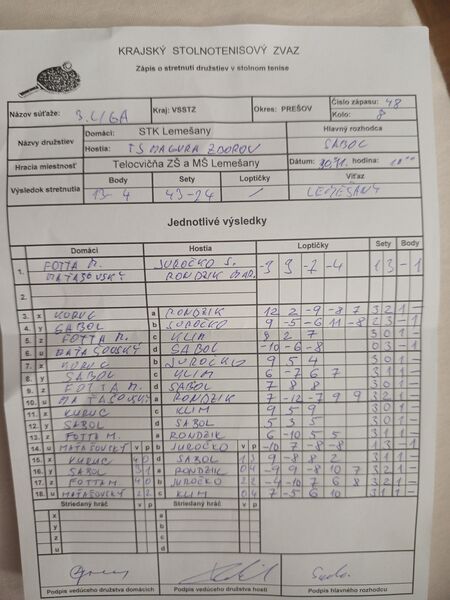 KRAJSKÝ STOLNOTENISOVÝ ZVAZ
Zápis o stretnutí družstiev v stolnom tenise
Názov súťaže: 3. LIGA Kraj: VSSTZ Okres: PREŠOV Číslo zápasu: 48
Kolo: 8
Názvy družstiev Domáci: STK Lemešany Hlavný rozhodca
Hostia: TŠ MAGURA ZBOROV SABOL
Hracia miestnosť Telocvičňa ZŠ a MŠ Lemešany Dátum: 30.11. hodina: 10 00
Výsledok stretnutia Body Sety Loptičky Víťaz
13 - 4 43-24 / LEMEŠANY
Jednotlivé výsledky
Domáci Hostia Loptičky Sety Body
1. FOTTA M. JUROČKO S. -9 9 -7 -4 1 3 - 1
MATAŠOVSKÝ RONDZIK
2.
3. x KURUC a RONDZIK 12 2 -9 -8 7 3 2 1 -
4. y SABOL b JUROČKO 9 -5 -6 11 -8 2 3 - 1
5. z FOTTA M. c KLIM 8 2 7 3 0 1 -
6. u MATAŠOVSKÝ d SABOL -10 -6 -8 0 3 - 1
7. x KURUC b JUROČKO 9 5 4 3 0 1 -
8. y SABOL c KLIM 6 -7 6 7 3 1 1 -
9. z FOTTA M. d SABOL 7 8 8 3 0 1 -
10. u MATAŠOVSKÝ a RONDZIK 7 -12 -7 9 9 3 2 1 -
11. x KURUC c KLIM 9 5 9 3 0 1 -
12. y SABOL d SABOL 5 3 5 3 0 1 -
13. z FOTTA M. a RONDZIK 6 -10 5 5 3 1 1 -
14. u MATAŠOVSKÝ v p b JUROČKO v p -10 7 -8 -8 1 3 - 1
15. x KURUC d SABOL 1 3 9 -8 8 2 3 1 1 -
16. y SABOL 3 1 a RONDZIK 0 4 -9 9 -8 10 7 3 2 1 -
17. z FOTTA M 4 0 b JUROČKO 2 2 -4 -10 7 6 8 3 2 1 -
18. u MATAŠOVSKÝ 2 2 c KLIM 0 4 7 -5 6 10 3 1 1 -
Striedaný hráč v p Striedaný hráč v p
x a
y b
z c
u d
Podpis vedúceho družstva domácich Podpis vedúceho družstva hostí Podpis hlavného rozhodcu